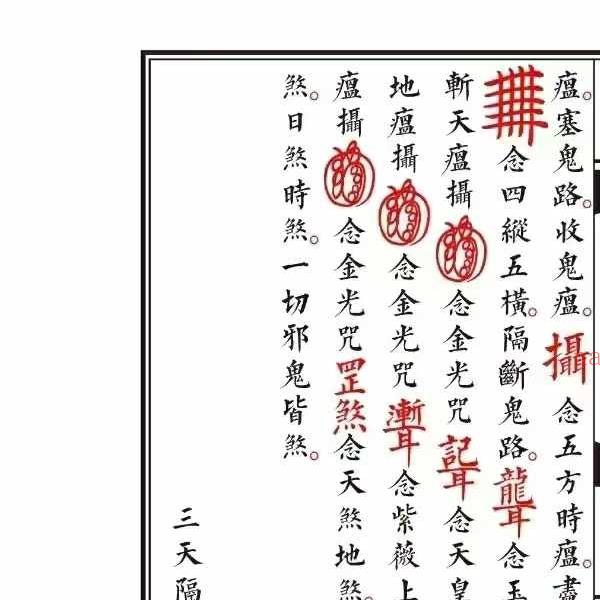 瘟。塞鬼路。收鬼瘟。攝念五方時瘟。盡
念四縱五橫。隔斷鬼路。聻念玉
斬天瘟攝念金光咒念天皇
地瘟攝念金光咒念紫薇上
瘟攝念金光咒罡煞念天煞地煞。
煞。日煞時煞。一切邪鬼皆煞。
三天隔